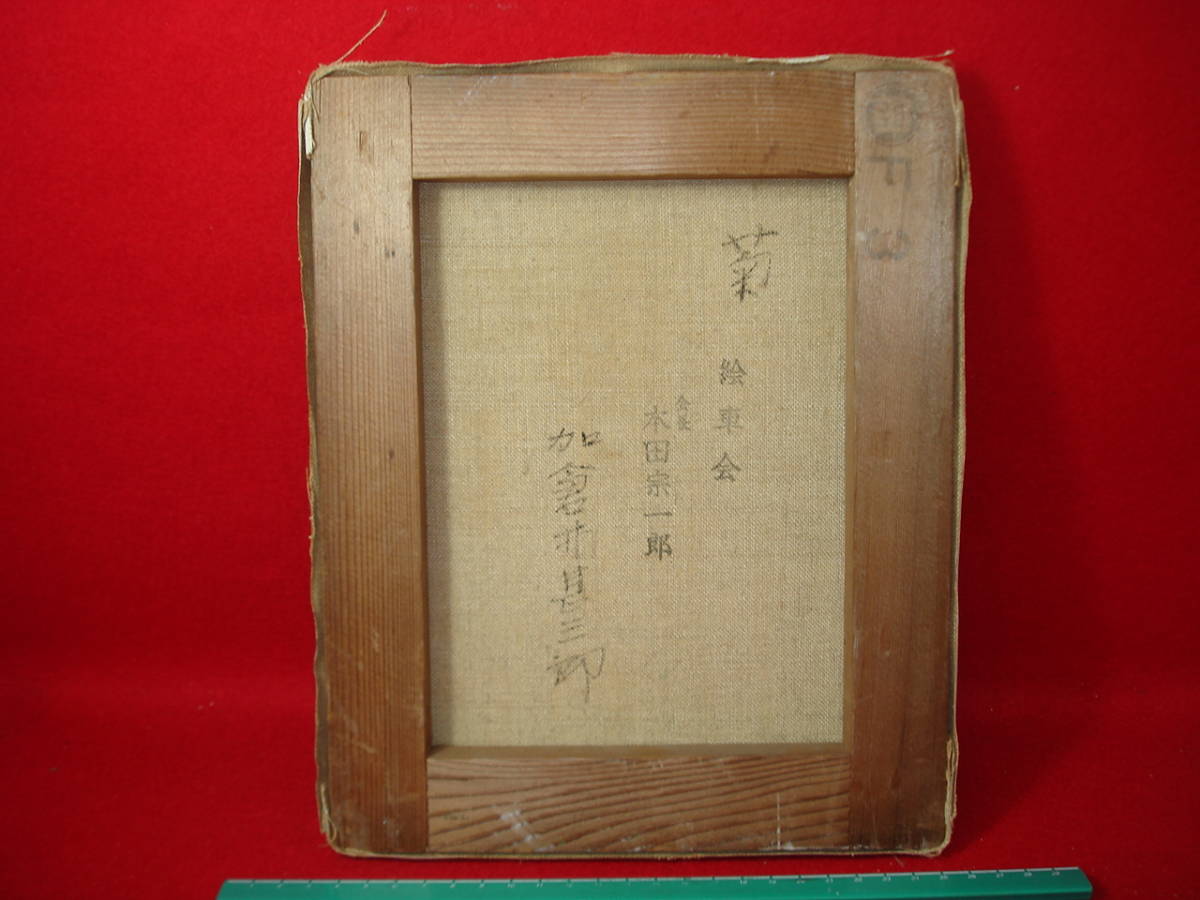 菊
絵車会
会長
本田宗一郎
加倉井甚三郎